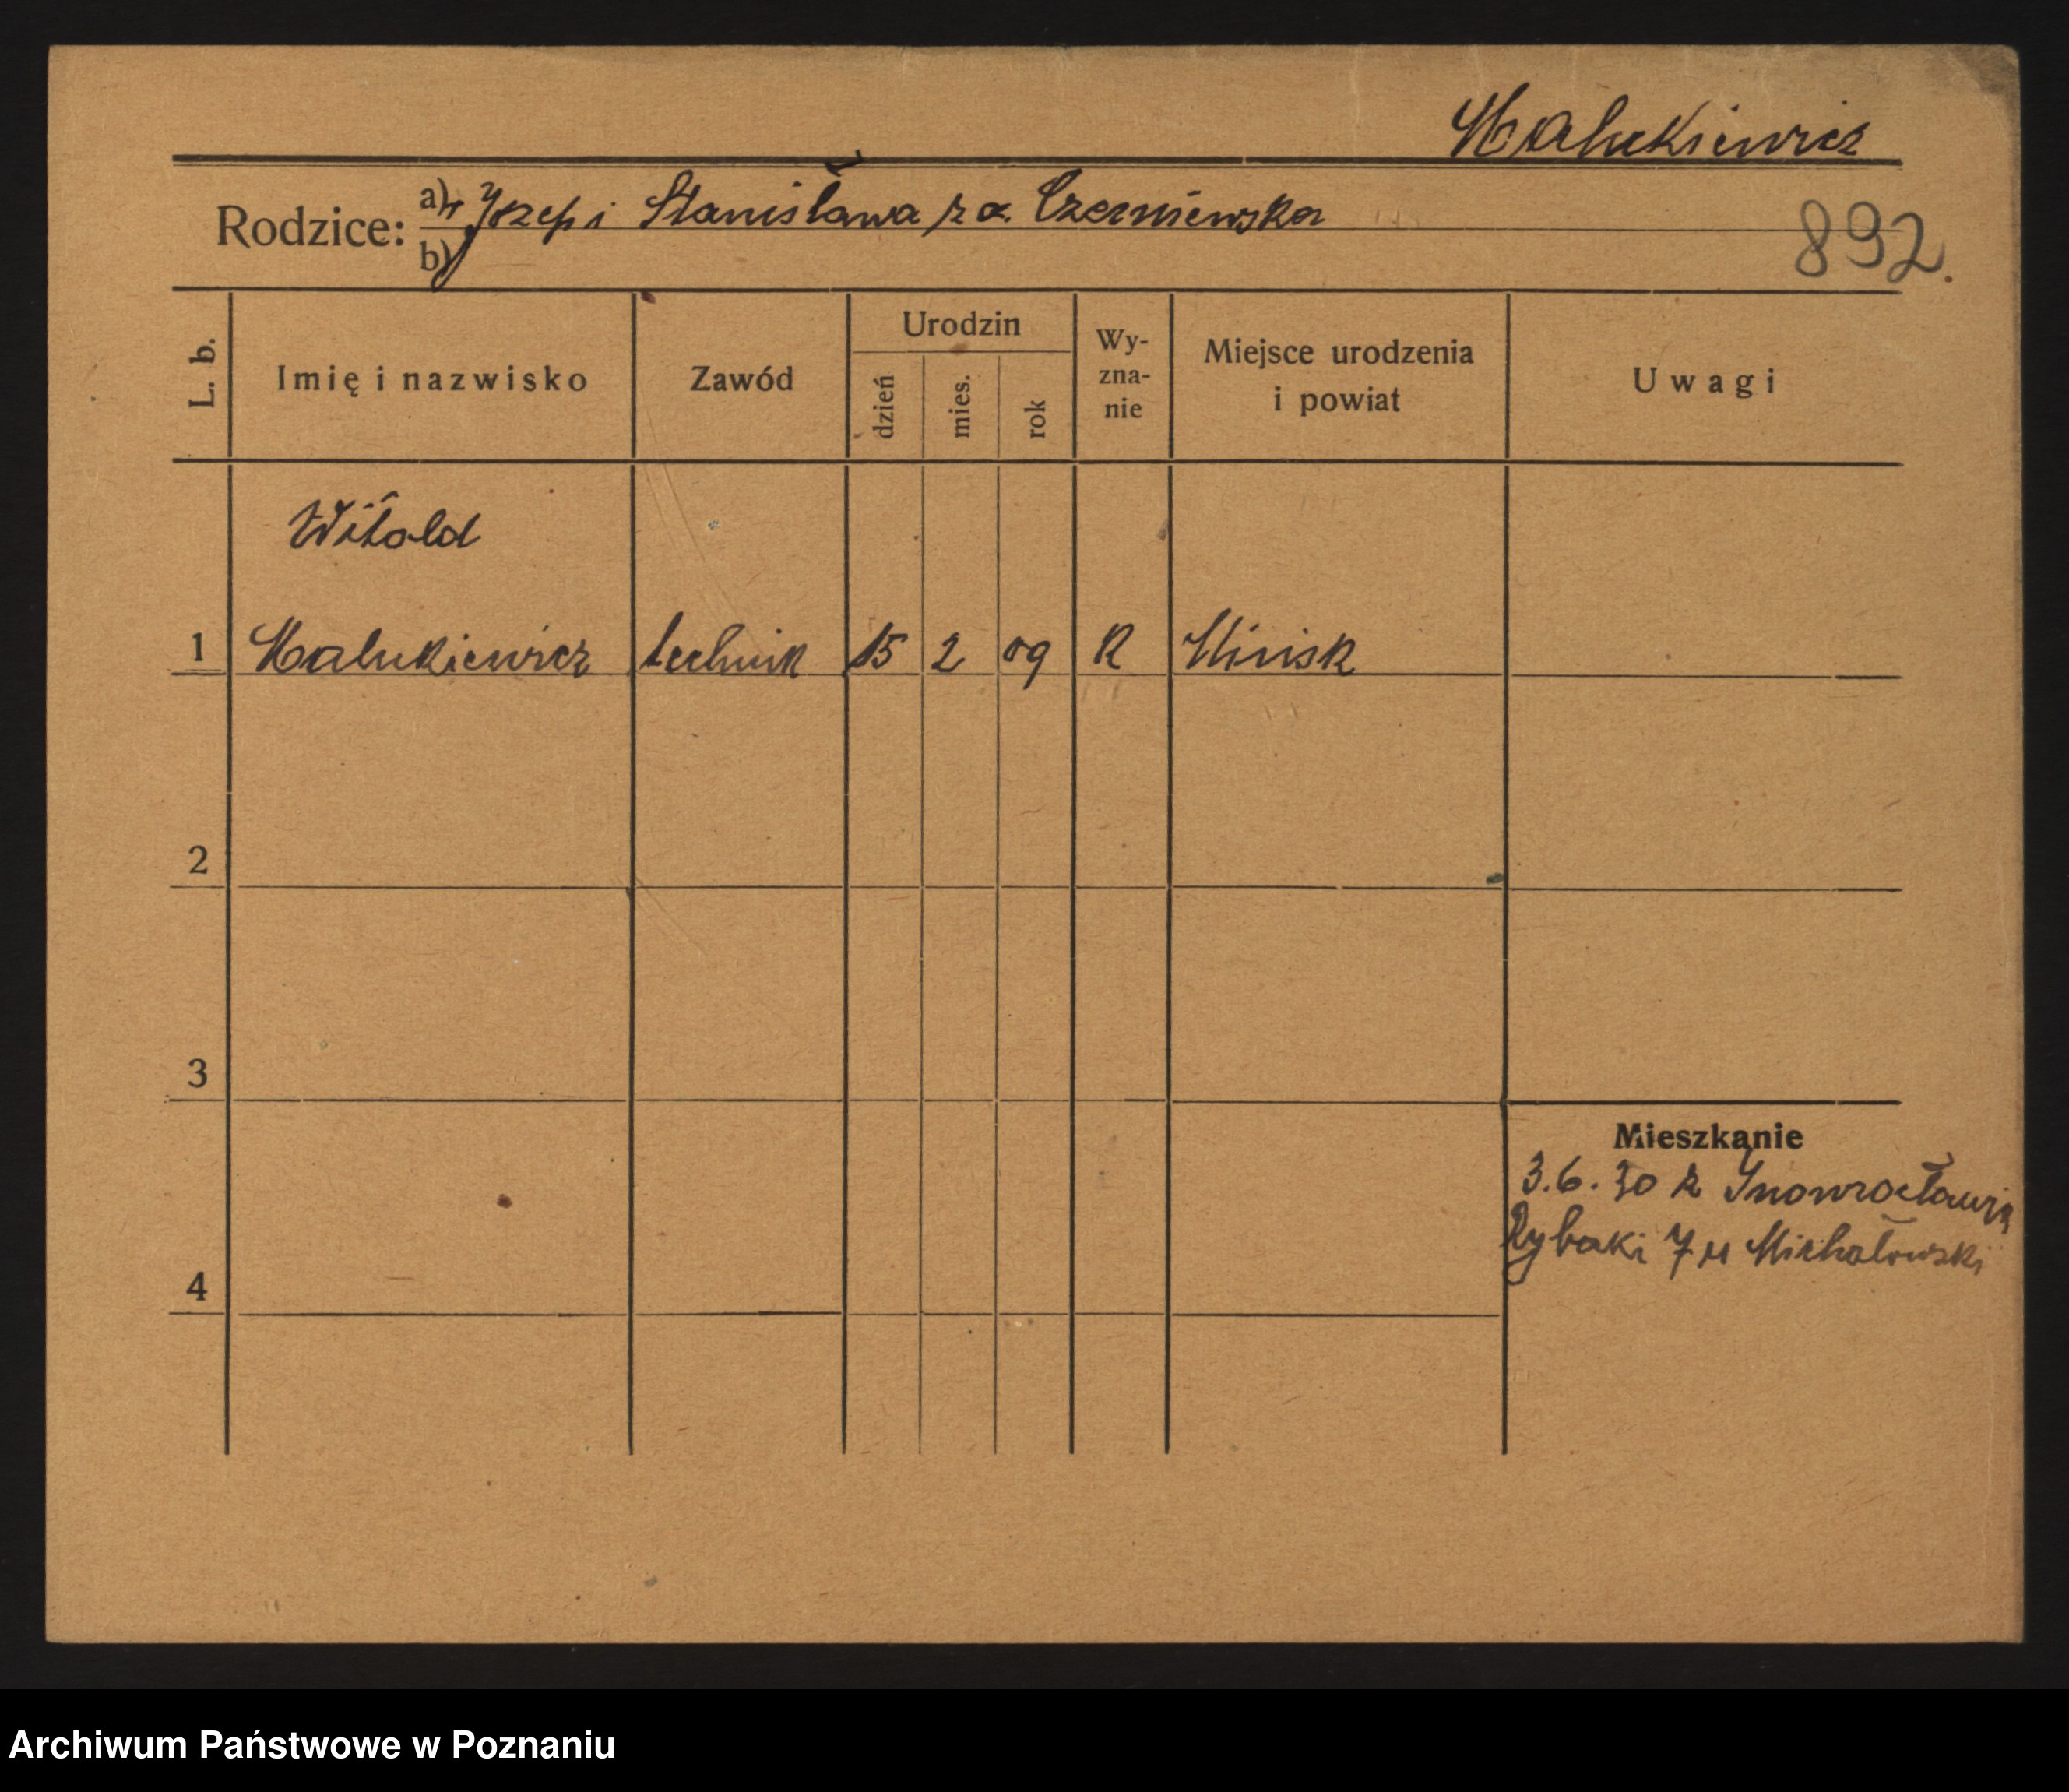 Malukiewicz
Rodzice: a) Józef i Stanisława z d. Czerniewska
b)
892.
L. b.
Imię i nazwisko
Zawód
Urodzin
dzień
mies.
rok
Wy-
zna-
nie
Miejsce urodzenia
i powiat
Uwagi
Witold
1 Malukiewicz technik 15 2 09 R Mińsk
2
3
Mieszkanie
3.6.30 z Inowrocławia
Rybaki 7 u Michałowski
4
Archiwum Państwowe w Poznaniu